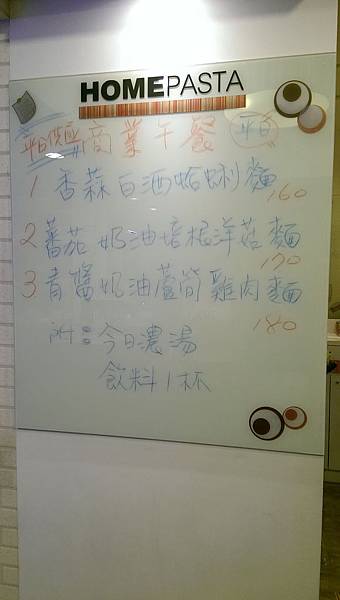 HOMEPASTA
平日供應 商業午餐 平日
1 香蒜白酒蛤蜊麵 160
2 蕃茄奶油培根洋菇麵 170
3 青醬奶油蘆筍雞肉麵 180
附:今日濃湯
飲料1杯